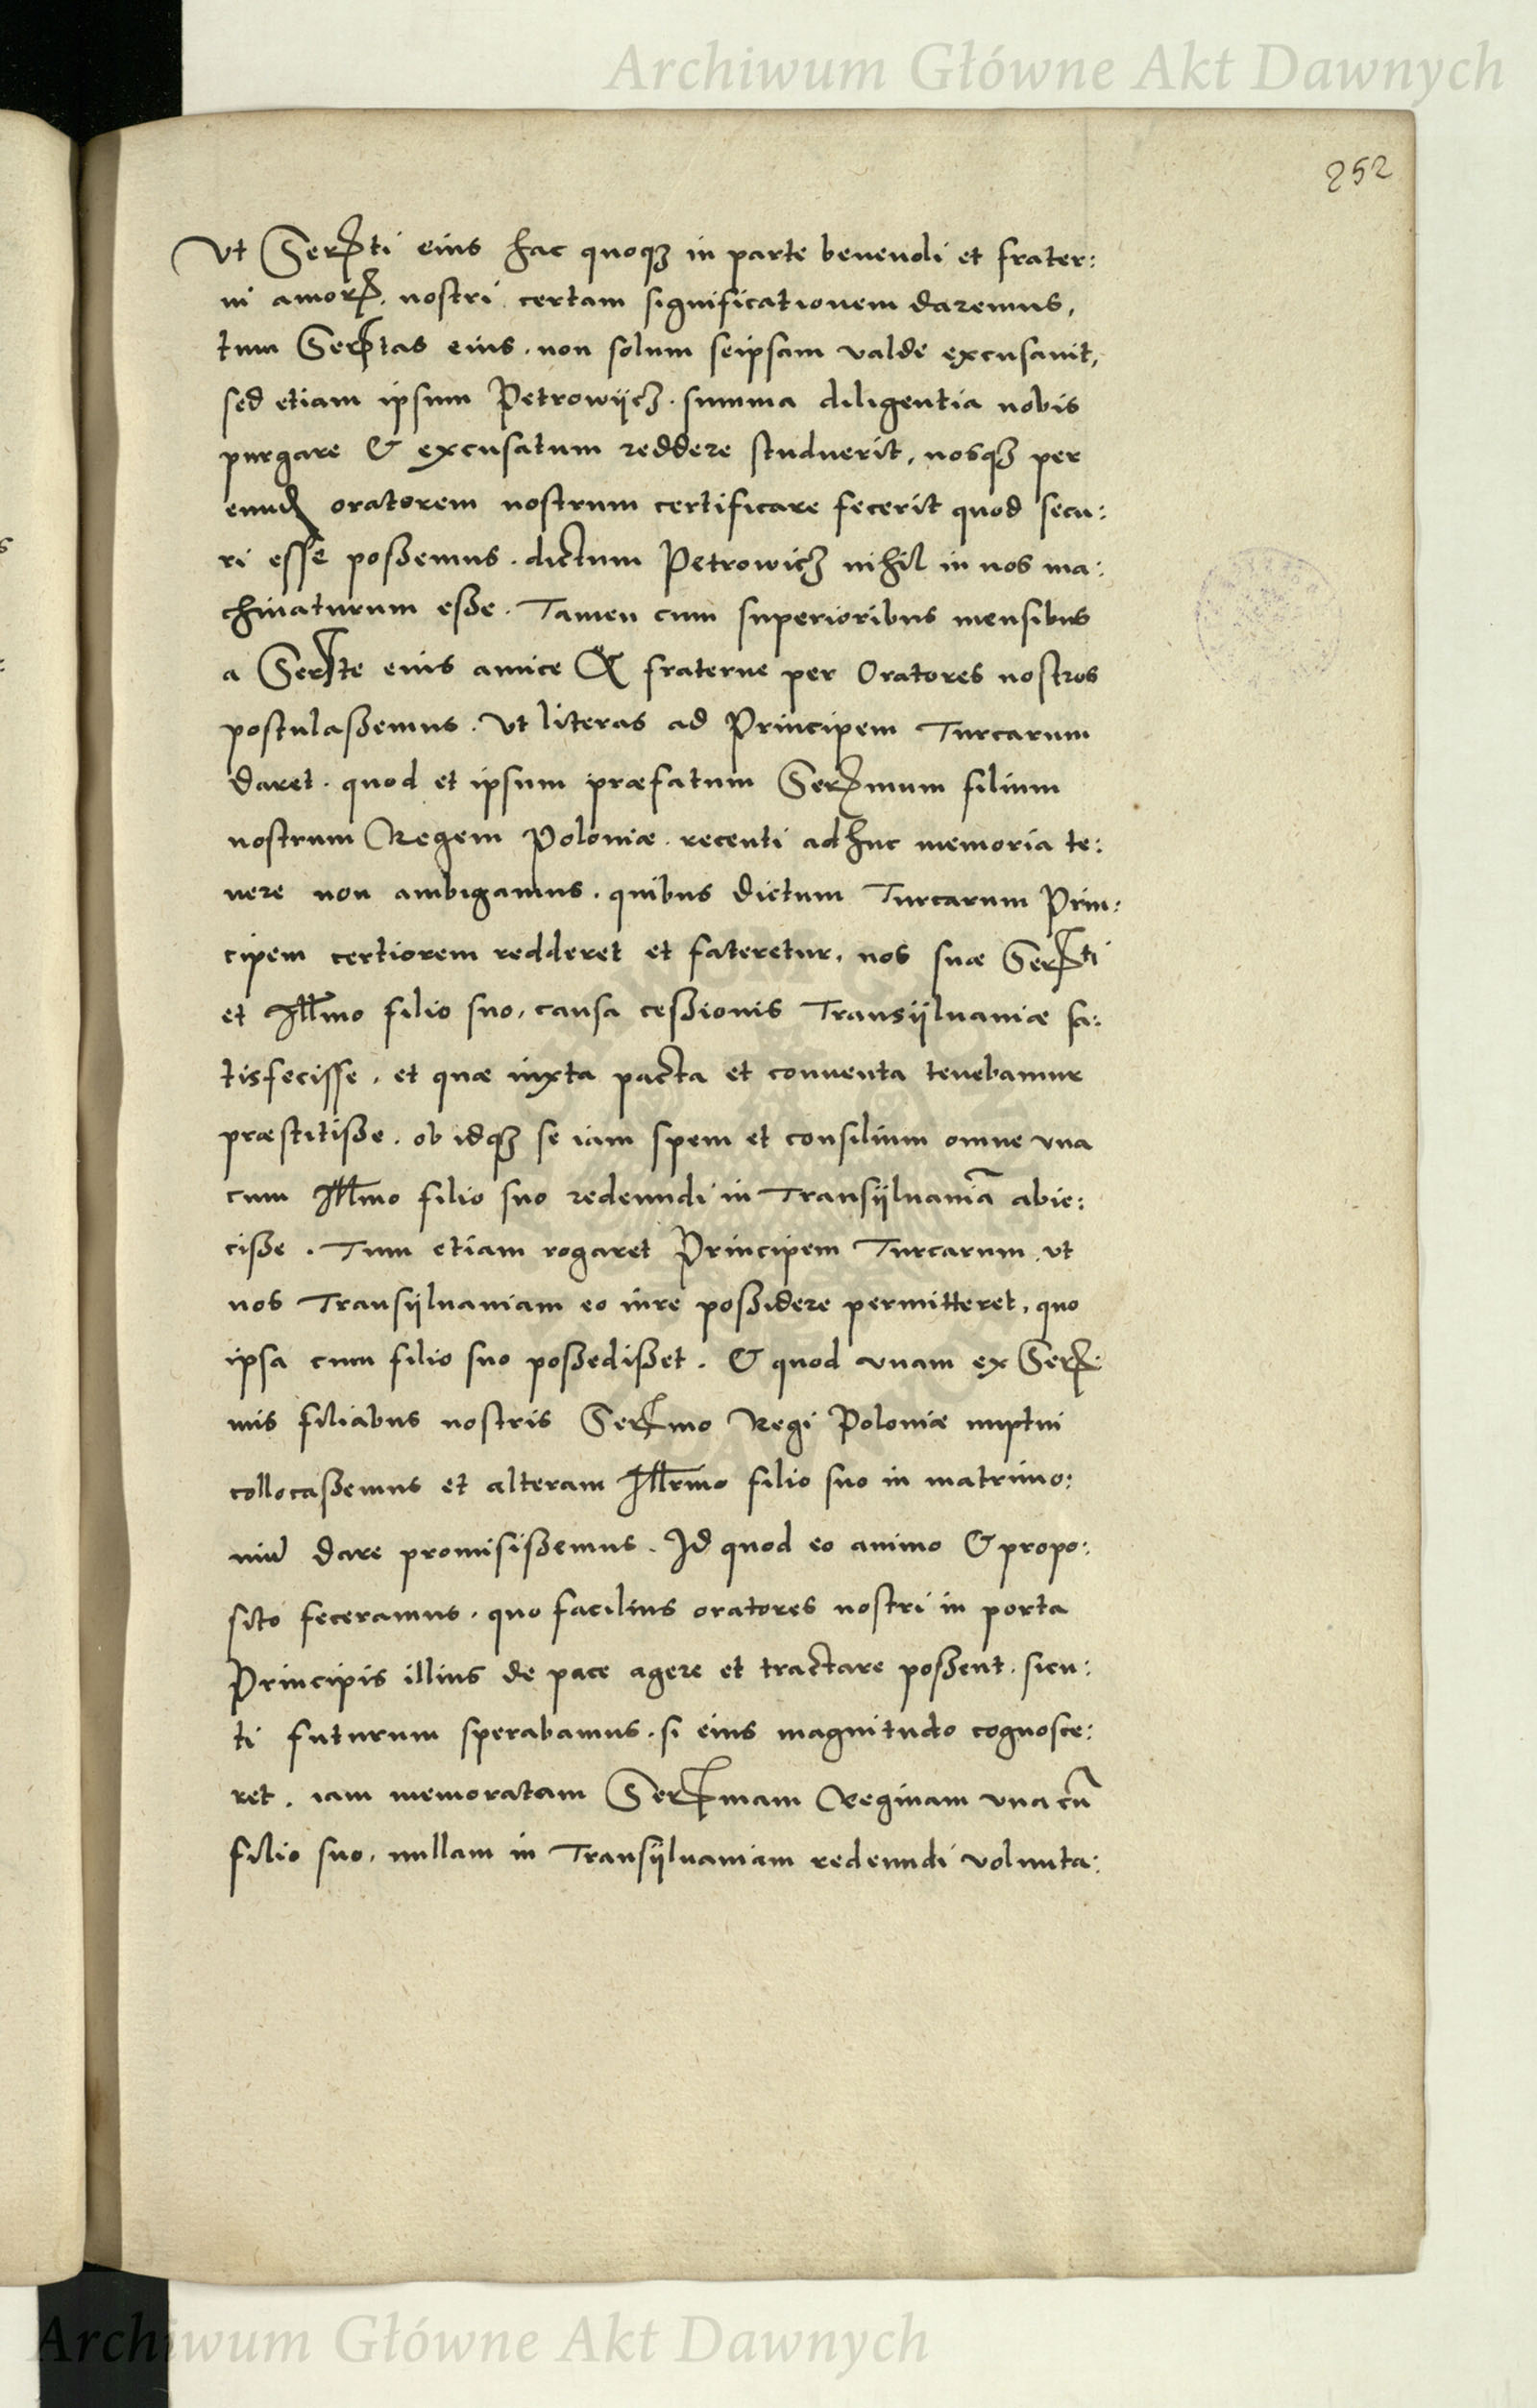 Archiwum Główne Akt Dawnych
252
Vt Serti eius hac quoqz in parte beneuoli et frater:
ni amor. nostri certam significationem daremus,
tum Sertas eius. non solum seipsam valde excusauit,
sed etiam ipsum Petrowijcz. summa diligentia nobis
purgare & excusatum reddere studuerit, nosqz per
eund oratorem nostrum certificare fecerit quod secu:
ri esse poßemus. dictum Petrowicz nihil in nos ma:
chinaturum eße. Tamen cum superioribus mensibus
a Serte eius amice & fraterne per Oratores nostros
postulaßemus. Vt literas ad Principem Turcarum
daret. quod et ipsum præfatum Sermum filium
nostrum Regem Poloniæ. recenti adhuc memoria te:
nere non ambigamus. quibus dictum Turcarum Prin:
cipem certiorem redderet et fateretur, nos suæ Serti
et Illmo filio suo, causa ceßionis Transijluaniæ sa:
tisfecisse, et quæ iuxta pacta et conuenta tenebamur
præstitiße. ob idqz se iam spem et consilium omne vna
cum Illmo filio suo redeundi in Transijluaniā abie:
ciße. Tum etiam rogaret Principem Turcarum, vt
nos Transijluaniam eo iure poßidere permitteret, quo
ipsa cum filio suo poßedißet. & quod vnam ex Ser:
mis filiabus nostris Sermo Regi Poloniæ nuptui
collocaßemus et alteram Illrmo filio suo in matrimo:
niū dare promisißemus. Id quod eo animo & propo:
sito feceramus. quo facilius oratores nostri in porta
Principis illius de pace agere et tractare poßent. sicu:
ti futurum sperabamus. si eius magnitudo cognosce:
ret. iam memoratam Sermam Reginam vna cū
filio suo, nullam in Transijluaniam redeundi volunta:
Archiwum Główne Akt Dawnych